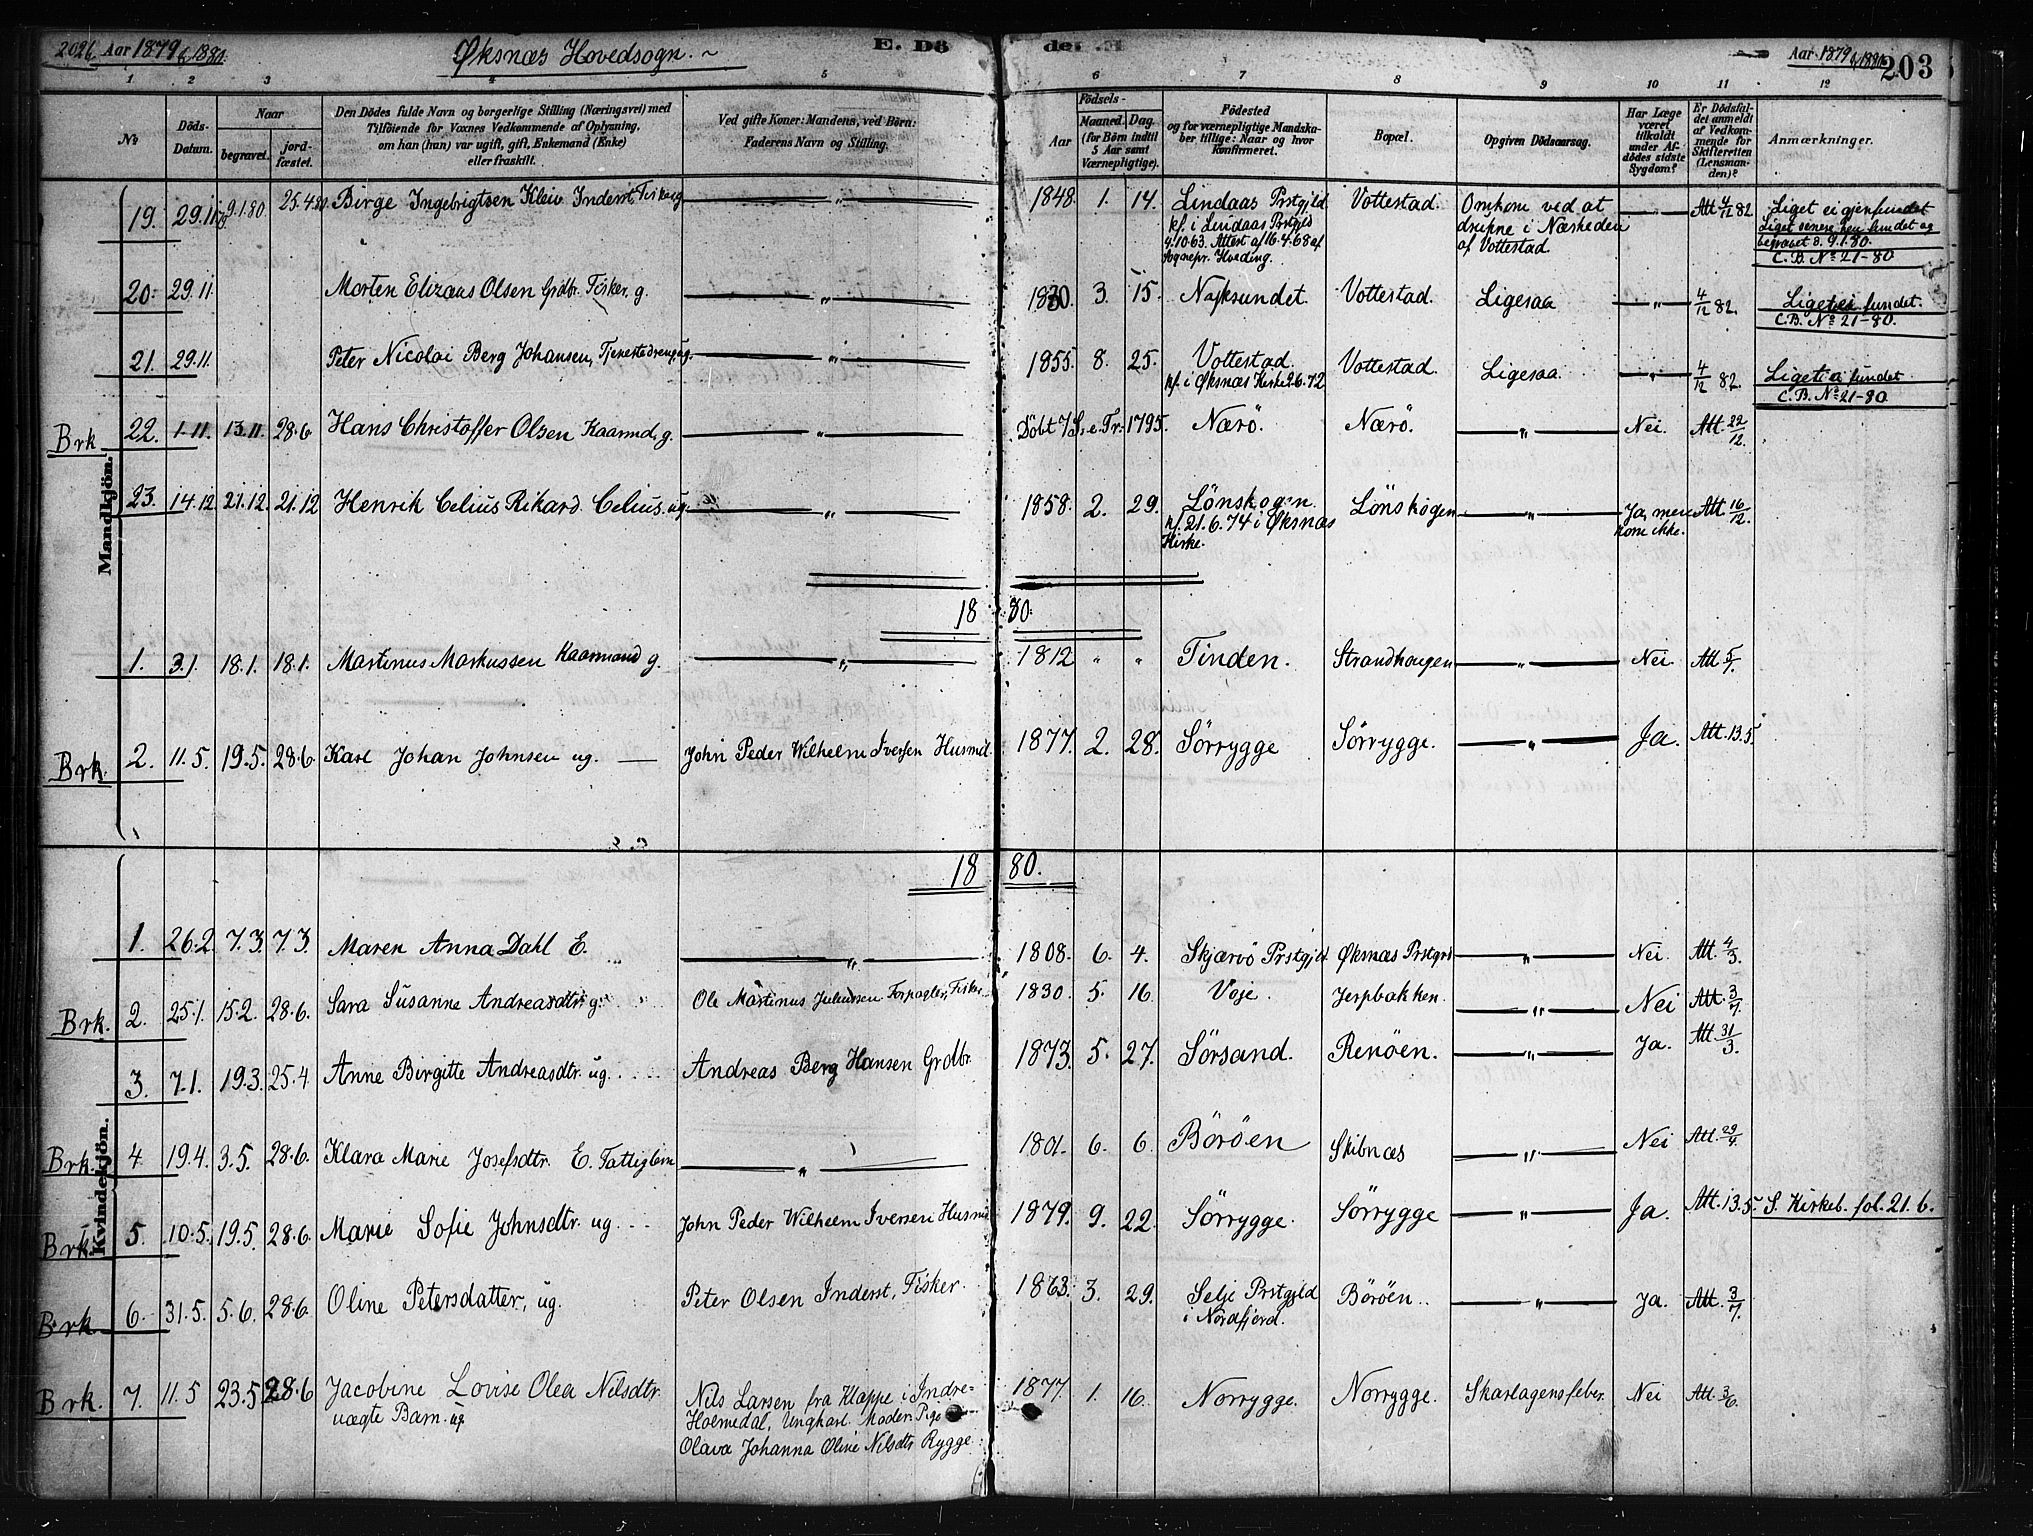 202b Aar 1879 & 1880. Øksnæs Hovedsogn. E. Dö de. Aar 1879 & 1880 203
1 2 3 4 5 6 7 8 9 10 11 12
No Döds-Datum. Naar begravet. jord-fæstet. Den Dödes fulde Navn og borgerlige Stilling (Næringsvei) med Tilföiende for Voxnes Vedkommende af Oplysning, om han (hun) var ugift, gift, Enkemand (Enke) eller fraskilt. Ved gifte Koner: Mandens, ved Börn: Faderens Navn og Stilling. Födsels- Aar Maaned. Dag. (for Börn indtil 5 Aar samt Værnepligtige). Födested og for værnepligtige Mandskaber tillige: Naar og hvor Konfirmeret. Bopæl. Opgiven Dödsaarsag. Har Læge været tilkaldt under Afdödes sidste Sygdom? Er Dödsfaldet anmeldt af Vedkommende for Skifteretten (Lensmanden)? Anmærkninger.
Mandkjön.
19. 29.11 9.1.80 25.4.80 Birge Ingebrigtsen Kleiv Inderst, Fisker g. — „ — 1848. 1. 14. Lindaas Prstgjld Vottestad. Omkom ved at — „ — Att 4/12 82 Liget ei gjenfundet
kf. i Lindaas Prstgjld drukne i Nærheden Liget senere hen fundet og
4.10.63. Attest af 16.4.68 af af Vottestad. begravet d. 9.1.80.
Sognepr. Hveding. C.B. No 21-80
20. 29.11 Morten Elizæus Olsen Grdbr. Fisker, g. — „ — 1830. 3. 15. Vottestad. Ligesaa — „ — 4/12 82. Liget ei fundet.
C.B. No 21-80.
21. 29.11 Peter Nicolai Berg Johansen, Tjenestedreng ug. — „ — 1855. 8. 25. Vottestad. Vottestad. Ligesaa. — „ — 4/12 82. Liget ei fundet
kf. i Øksnæs Kirke 2.6.72 C.B. No 21-80
Brk 22. 1.11. 13.11. 28.6 Hans Christoffer Olsen Kaarmd, g. — „ — Döbt 7 S. e. Tr. 1795. Nærö. Nærö. — „ — Nei. Att. 22/12.
23. 14.12. 21.12. 21.12 Henrik Celius Rikard Celius. ug. — „ — 1858. 2. 29. Lönskogen. Lönskogen — „ — Ja, men Att 16/12.
kf. 21.6.74 i Øksnæs kom ikke.
Kirke.
18 80.
1. 3.1. 18.1. 18.1. Martinus Markussen Kaarmand g. — „ — 1812 „ „ Tinden. Strandhaugen — „ — Nei. Att. 5/1.
Brk. 2. 11.5. 19.5. 28.6. Karl Johan Johnsen ug. — John Peder Wilhelm Iversen Husmd. 1877. 2. 28. Sörrygge Sörrygge. — „ — Ja. Att. 13.5.
18 80.
Kvindekjön.
1. 26.2 7.3 7.3 Maren Anna Dahl E. — „ — 1808. 6. 4. Skjærvö Prstgjld. Øksnæs Prstgrd — „ — Nei. Att. 4/3.
Brk. 2. 25.1. 15.2. 28.6. Sara Susanne Andreasdtr g. Ole Martinus Juliussen Forpagter, Fisker 1830. 5. 16. Voje. Jerpbakken. — „ — Nei Att. 3/7.
3. 7.1. 19.3. 25.4. Anne Birgitte Andreasdtr. ug. Andreas Berg Hansen Grdbr. 1873. 5. 27. Sörsand. Renöen. — „ — Ja. Att. 31/3.
Brk. 4. 19.4. 3.5. 28.6. Klara Marie Josefsdtr. E. Fattiglem — „ — 1801. 6. 6. Böröen Skibnæs — „ — Nei Att. 29/4.
Brk. 5. 10.5. 19.5. 28.6. Marie Sofie Johnsdtr. ug. John Peder Wilhelm Iversen Husmd 1879. 9. 22. Sörrygge. Sörrygge — „ — Ja. Att. 13.5. S. Kirkeb. fol. 21.6.
Brk. 6. 31.5. 5.6. 28.6. Oline Petersdatter, ug. Peter Olsen Inderst, Fisker. 1863. 3. 29. Selje Prstgjld Böröen. — „ — Ja. Att. 3/7.
i Nordfjord.
Brk. 7. 11.5 23.5 28.6 Jacobine Lovise Olea Nilsdtr. Nils Larsen fra Klappe i Indre- 1877. 1. 16. Norrygge. Norrygge. Skarlagensfeber. Nei Att. 3/6.
uægte Barn. ug Holmedal, Ungkarl. Moder: Pige
Olava Johanna Oline Nilsdtr Rygge.